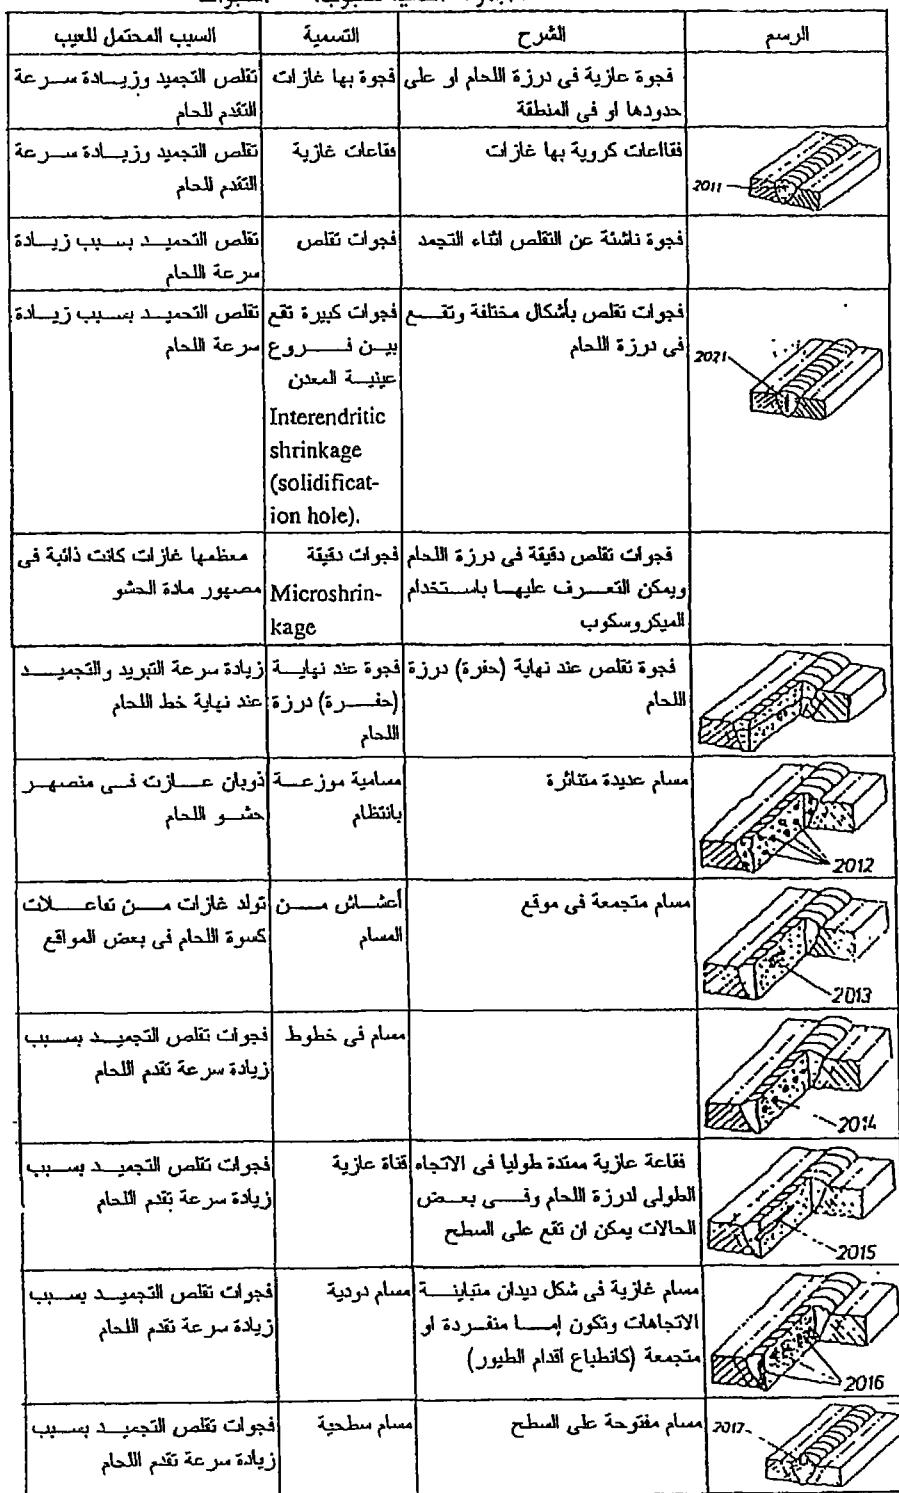 الرسم	الشرح	التسمية	السبب المحتمل للعيب
فجوة عازية فى درزة اللحام او على
حدودها او فى المنطقة
فجوة بها غازات
تقلص التجميد وزيادة سرعة
التقدم للحام
2011
فقااعات كروية بها غازات
فقاعات غازية
تقلص التجميد وزيادة سرعة
التقدم للحام
فجوة ناشئة عن التقلص اثناء التجمد
فجوات تقلص
تقلص التحميد بسبب زيادة
سرعة اللحام
2021
فجوات تقلص بأشكال مختلفة وتقع
فى درزة اللحام
فجوات كبيرة تقع
بين فروع
عينية المعدن
Interendritic
shrinkage
(solidificat-
ion hole).
تقلص التحميد بسبب زيادة
سرعة اللحام
فجوات تقلص دقيقة فى درزة اللحام
ويمكن التعرف عليها باستخدام
الميكروسكوب
فجوات دقيقة
Microshrin-
kage
معظمها غازات كانت ذائبة فى
مصهور مادة الحشو
فجوة تقلص عند نهاية (حفرة) درزة
اللحام
فجوة عند نهاية
(حفرة) درزة
اللحام
زيادة سرعة التبريد والتجميد
عند نهاية خط اللحام
2012
مسام عديدة متناثرة
مسامية موزعة
بانتظام
ذوبان عازت فى منصهر
حشو اللحام
2013
مسام متجمعة فى موقع
أعشاش من
المسام
تولد غازات من تفاعلات
كسوة اللحام فى بعض المواقع
2014
مسام فى خطوط
فجوات تقلص التجميد بسبب
زيادة سرعة تقدم اللحام
2015
فقاعة عازية ممتدة طوليا فى الاتجاه
الطولى لدرزة اللحام وفى بعض
الحالات يمكن ان تقع على السطح
قناة عازية
فجوات تقلص التجميد بسبب
زيادة سرعة تقدم اللحام
2016
مسام غازية فى شكل ديدان متباينة
الاتجاهات وتكون إما منفردة او
متجمعة (كانطباع اقدام الطيور)
مسام دودية
فجوات تقلص التجميد بسبب
زيادة سرعة تقدم اللحام
2017
مسام مفتوحة على السطح
مسام سطحية
فجوات تقلص التجميد بسبب
زيادة سرعة تقدم اللحام